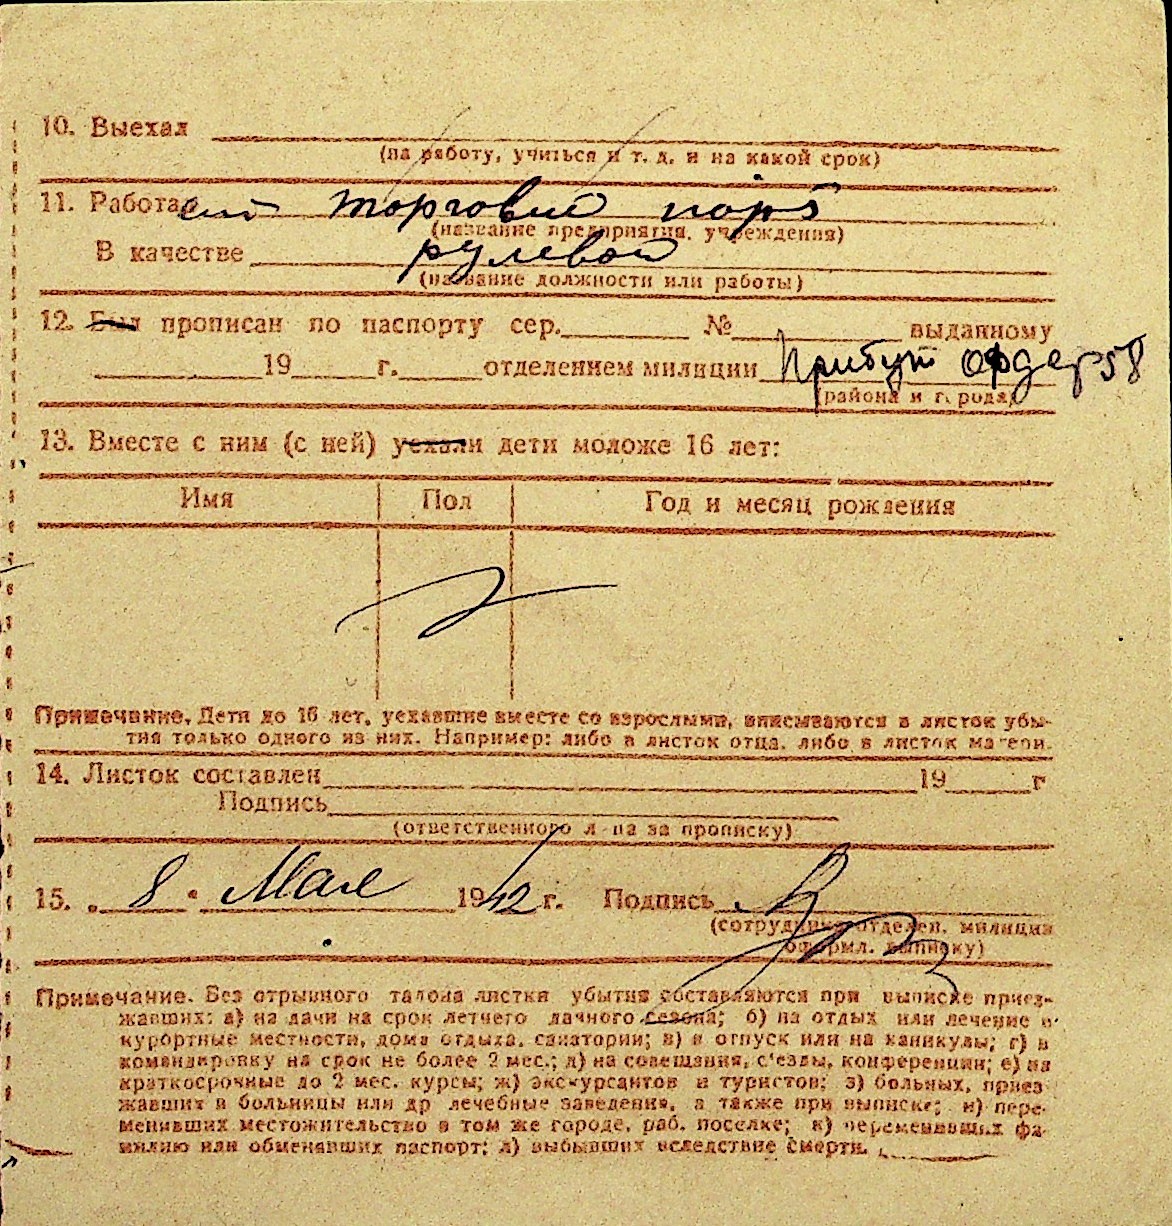 10. Выехал
(на работу, учиться и т. д. и на какой срок)
11. Работа торговый порт
(название предприятия, учреждения)
В качестве рулевой
(название должности или работы)
12. Был прописан по паспорту сер. № выданному
19 г. отделением милиции Прибут ордер 58
(района и города)
13. Вместе с ним (с ней) уехали дети моложе 16 лет:
Имя Пол Год и месяц рождения
Примечание. Дети до 16 лет, уехавшие вместе со взрослыми, вписываются в листок убы-
тия только одного из них. Например: либо в листок отца, либо в листок матери.
14. Листок составлен 19 г
Подпись
(ответственного л-ца за прописку)
15. „ 8 " Мая 1942 г. Подпись
(сотрудника отделен. милиции
оформл. выписку)
Примечание. Без отрывного талона листки убытия составляются при выписке приез-
жавших: а) на дачи на срок летнего дачного сезона; б) на отдых или лечение в
курортные местности, дома отдыха, санатории; в) в отпуск или на каникулы; г) в
командировку на срок не более 2 мес.; д) на совещания, с'езды, конференции; е) на
краткосрочные до 2 мес. курсы; ж) экскурсантов и туристов; з) больных, приез-
жавших в больницы или др лечебные заведения, а также при выписке; и) пере-
менивших местожительство в том же городе, раб. поселке; к) переменивших фа-
милию или обменявших паспорт; л) выбывших вследствие смерти.